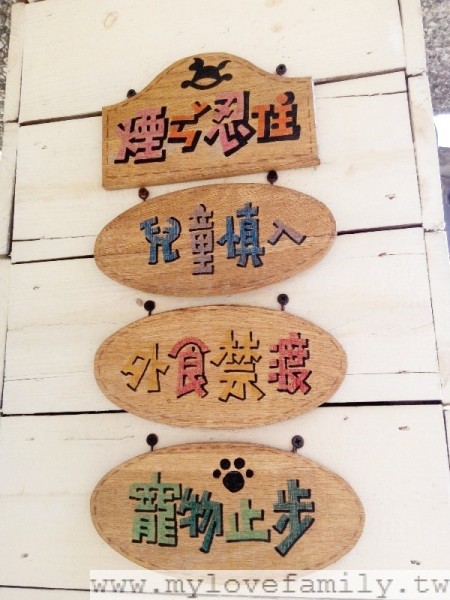 煙ㄣ忍住
兒童慎入
外食禁渡
寵物止步
www.mylovefamily.tw